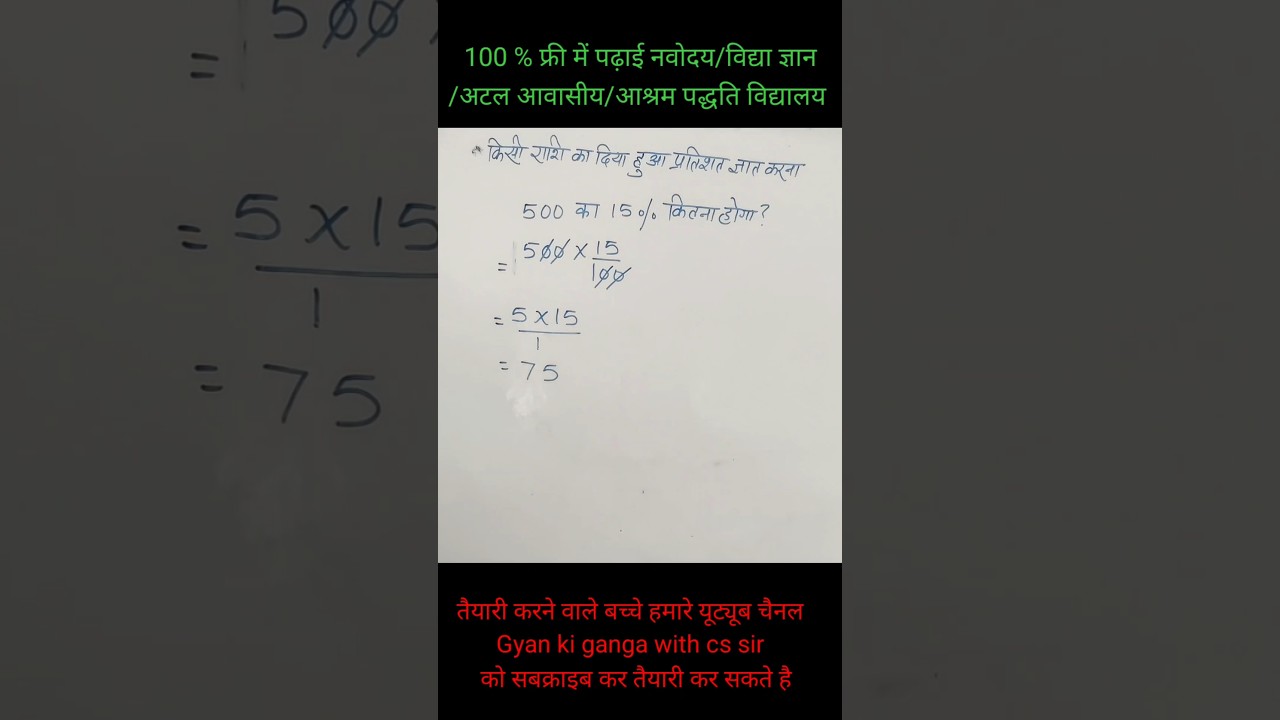 100 % फ्री में पढ़ाई नवोदय/विद्या ज्ञान
/अटल आवासीय/आश्रम पद्धति विद्यालय
किसी राशि का दिया हुआ प्रतिशत ज्ञात करना
500 का 15% कितना होगा?
= 500 × 15/100
= 5 × 15/1
= 75
तैयारी करने वाले बच्चे हमारे यूट्यूब चैनल
Gyan ki ganga with cs sir
को सबक्राइब कर तैयारी कर सकते है
= 500
= 5 × 15
1
= 75